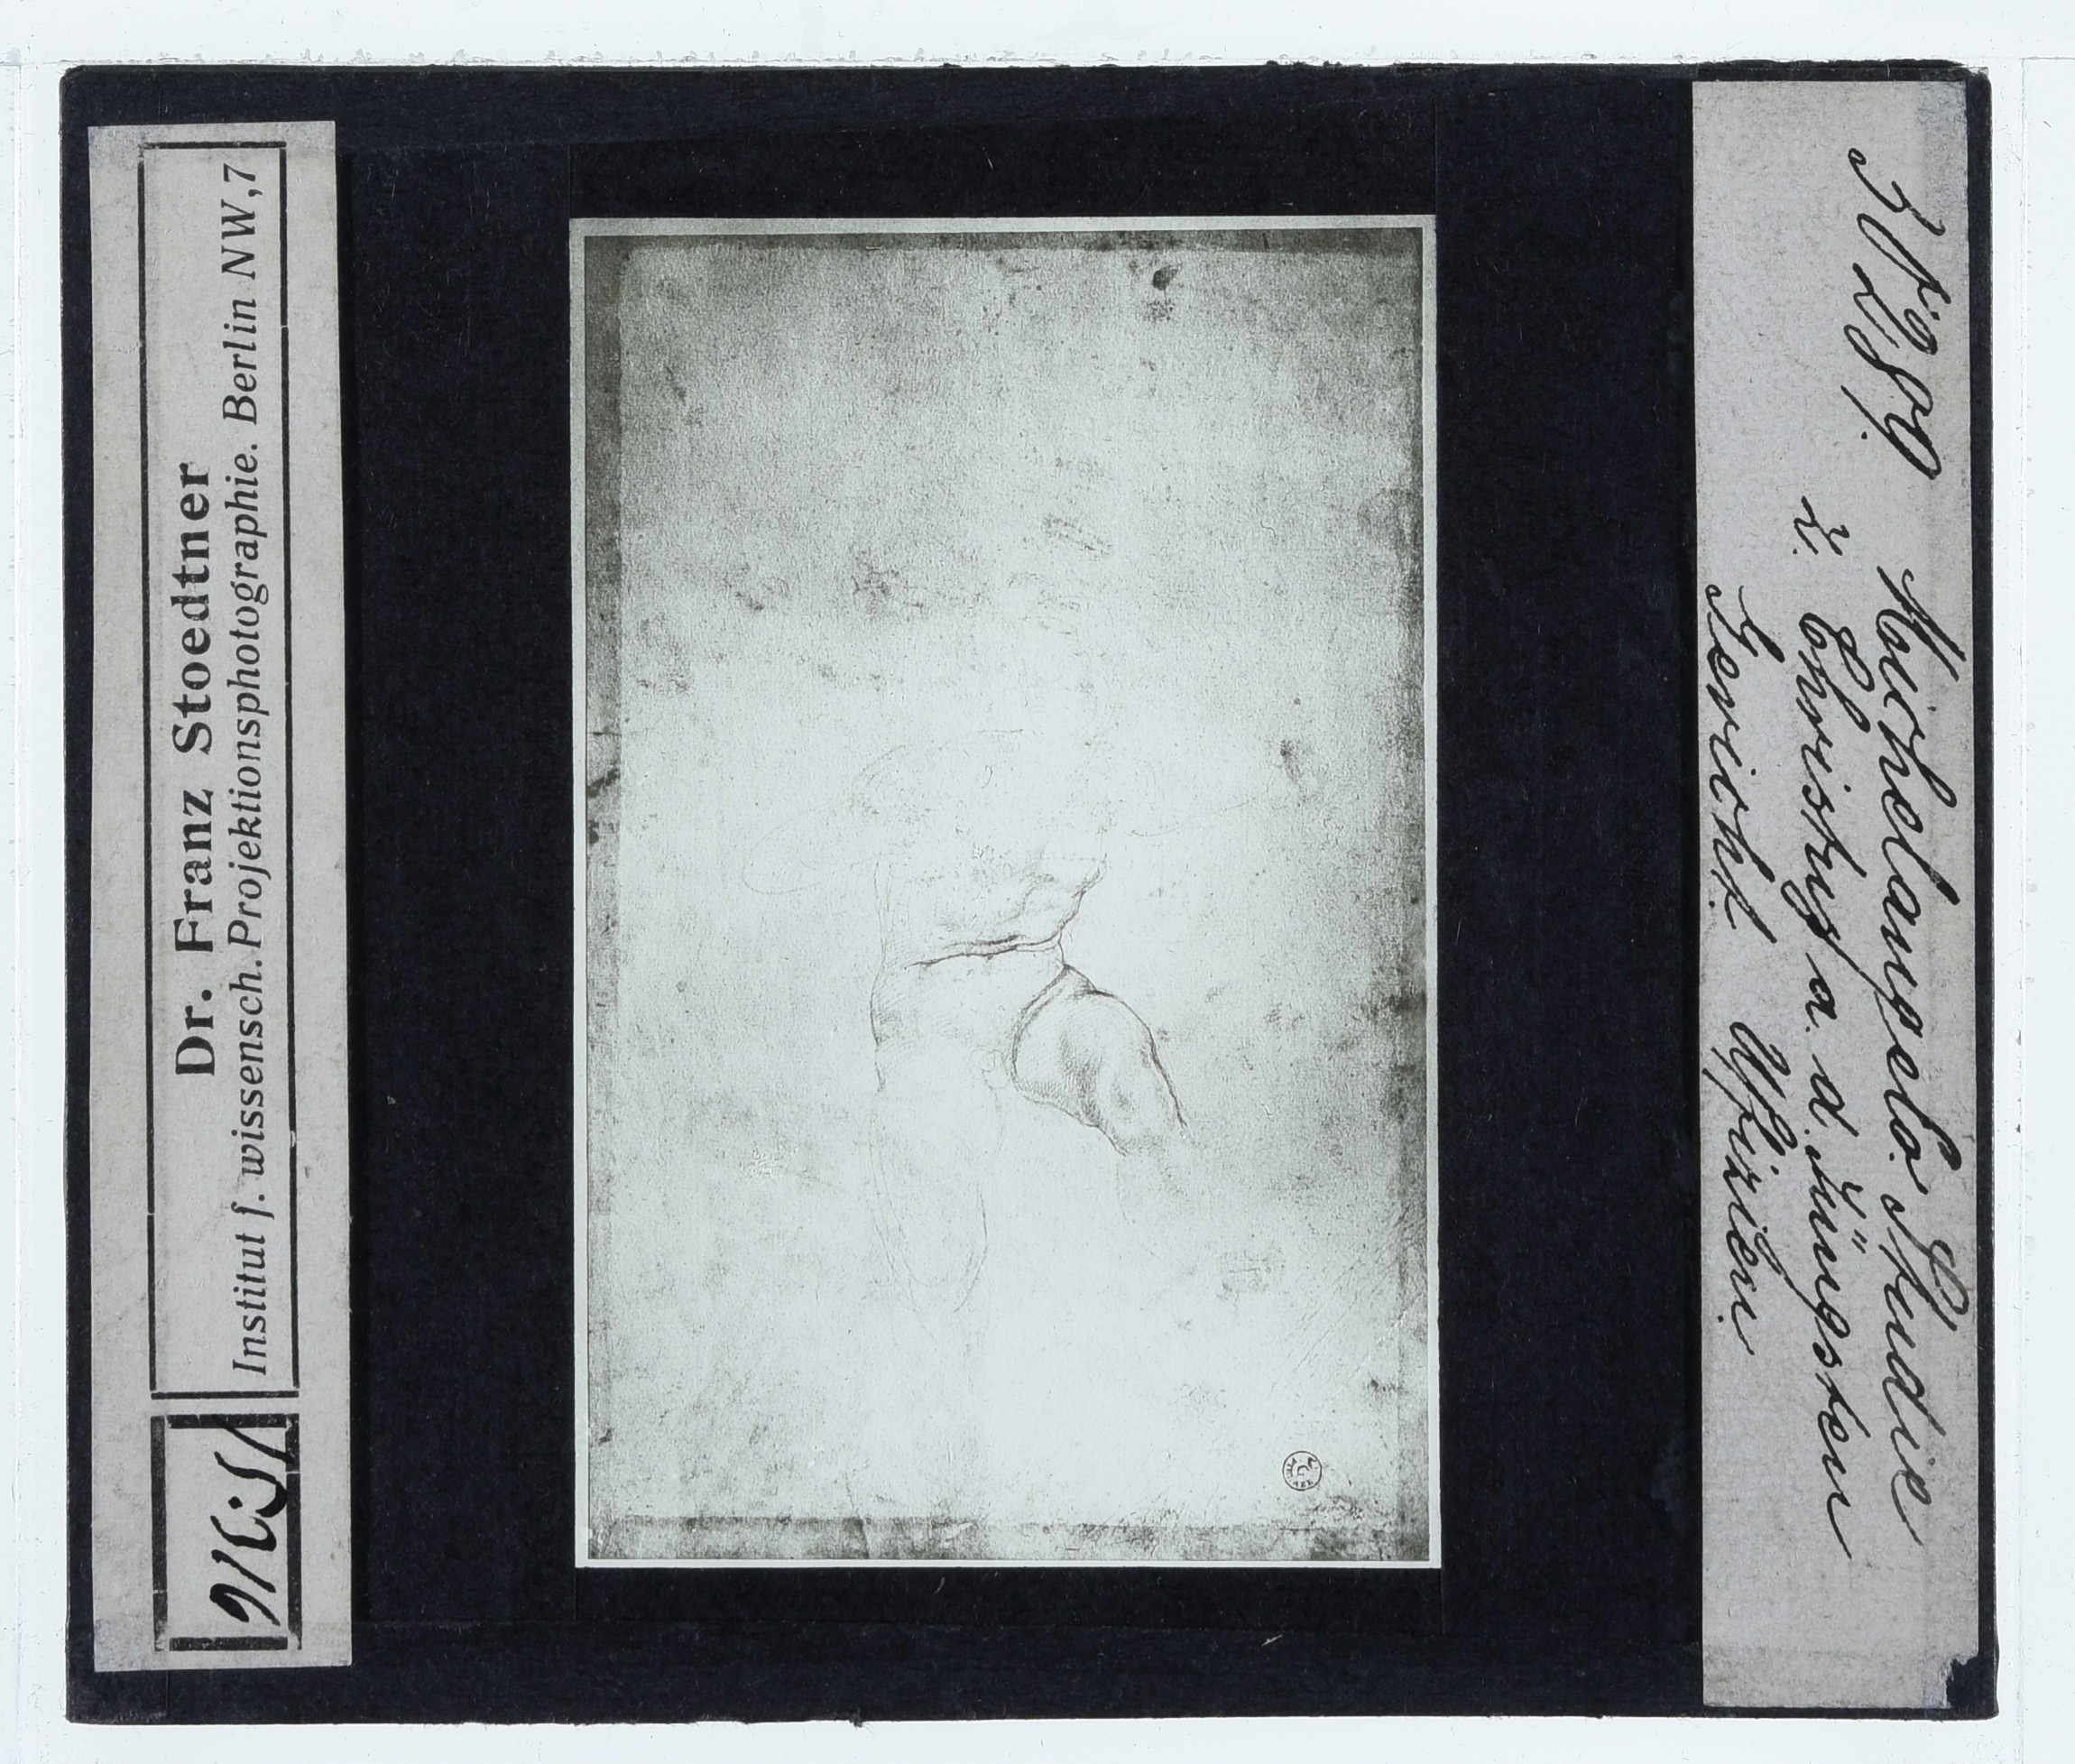 Dr. Franz Stoedtner
Institut f. wissensch. Projektionsphotographie. Berlin NW, 7
Michelangelo. Studie
z. Christus a. d. Jüngsten
Gericht. Uffizien.